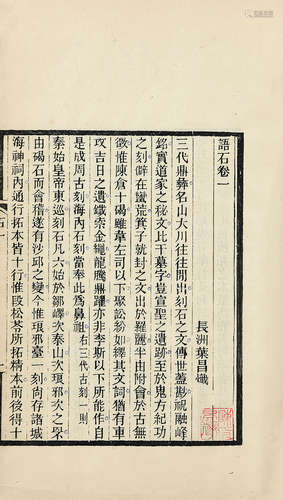 語石卷一
長洲葉昌熾
三代鼎彝名山大川往往間出刻石之文傳世蓋尟祝融峰
銘實道家之祕文比干墓字豈宣聖之遺跡至於鬼方紀功
之刻僻在蠻荒箕子就封之文出於羅麗半由附會於古無
徵惟陳倉十碣雖韋左司以下聚訟紛如繹其文詞猶有車
攻吉日之遺鐵索金繩龍騰鼎躍亦非李斯以下所能作自
是成周古刻海內石刻當奉此爲鼻祖右三代古刻一則
秦始皇帝東巡刻石凡六始於鄒嶧次泰山次琅邪次之罘
由碣石而會稽遂有沙邱之變今惟琅邪臺一刻尚存諸城
海神祠內通行拓本皆十行惟段松苓所拓精本前後得十